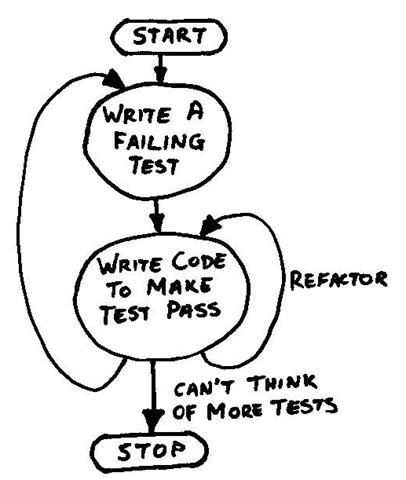 START
WRITE A
FAILING
TEST
WRITE CODE
TO MAKE
TEST PASS
REFACTOR
CAN'T THINK
OF MORE TESTS
STOP